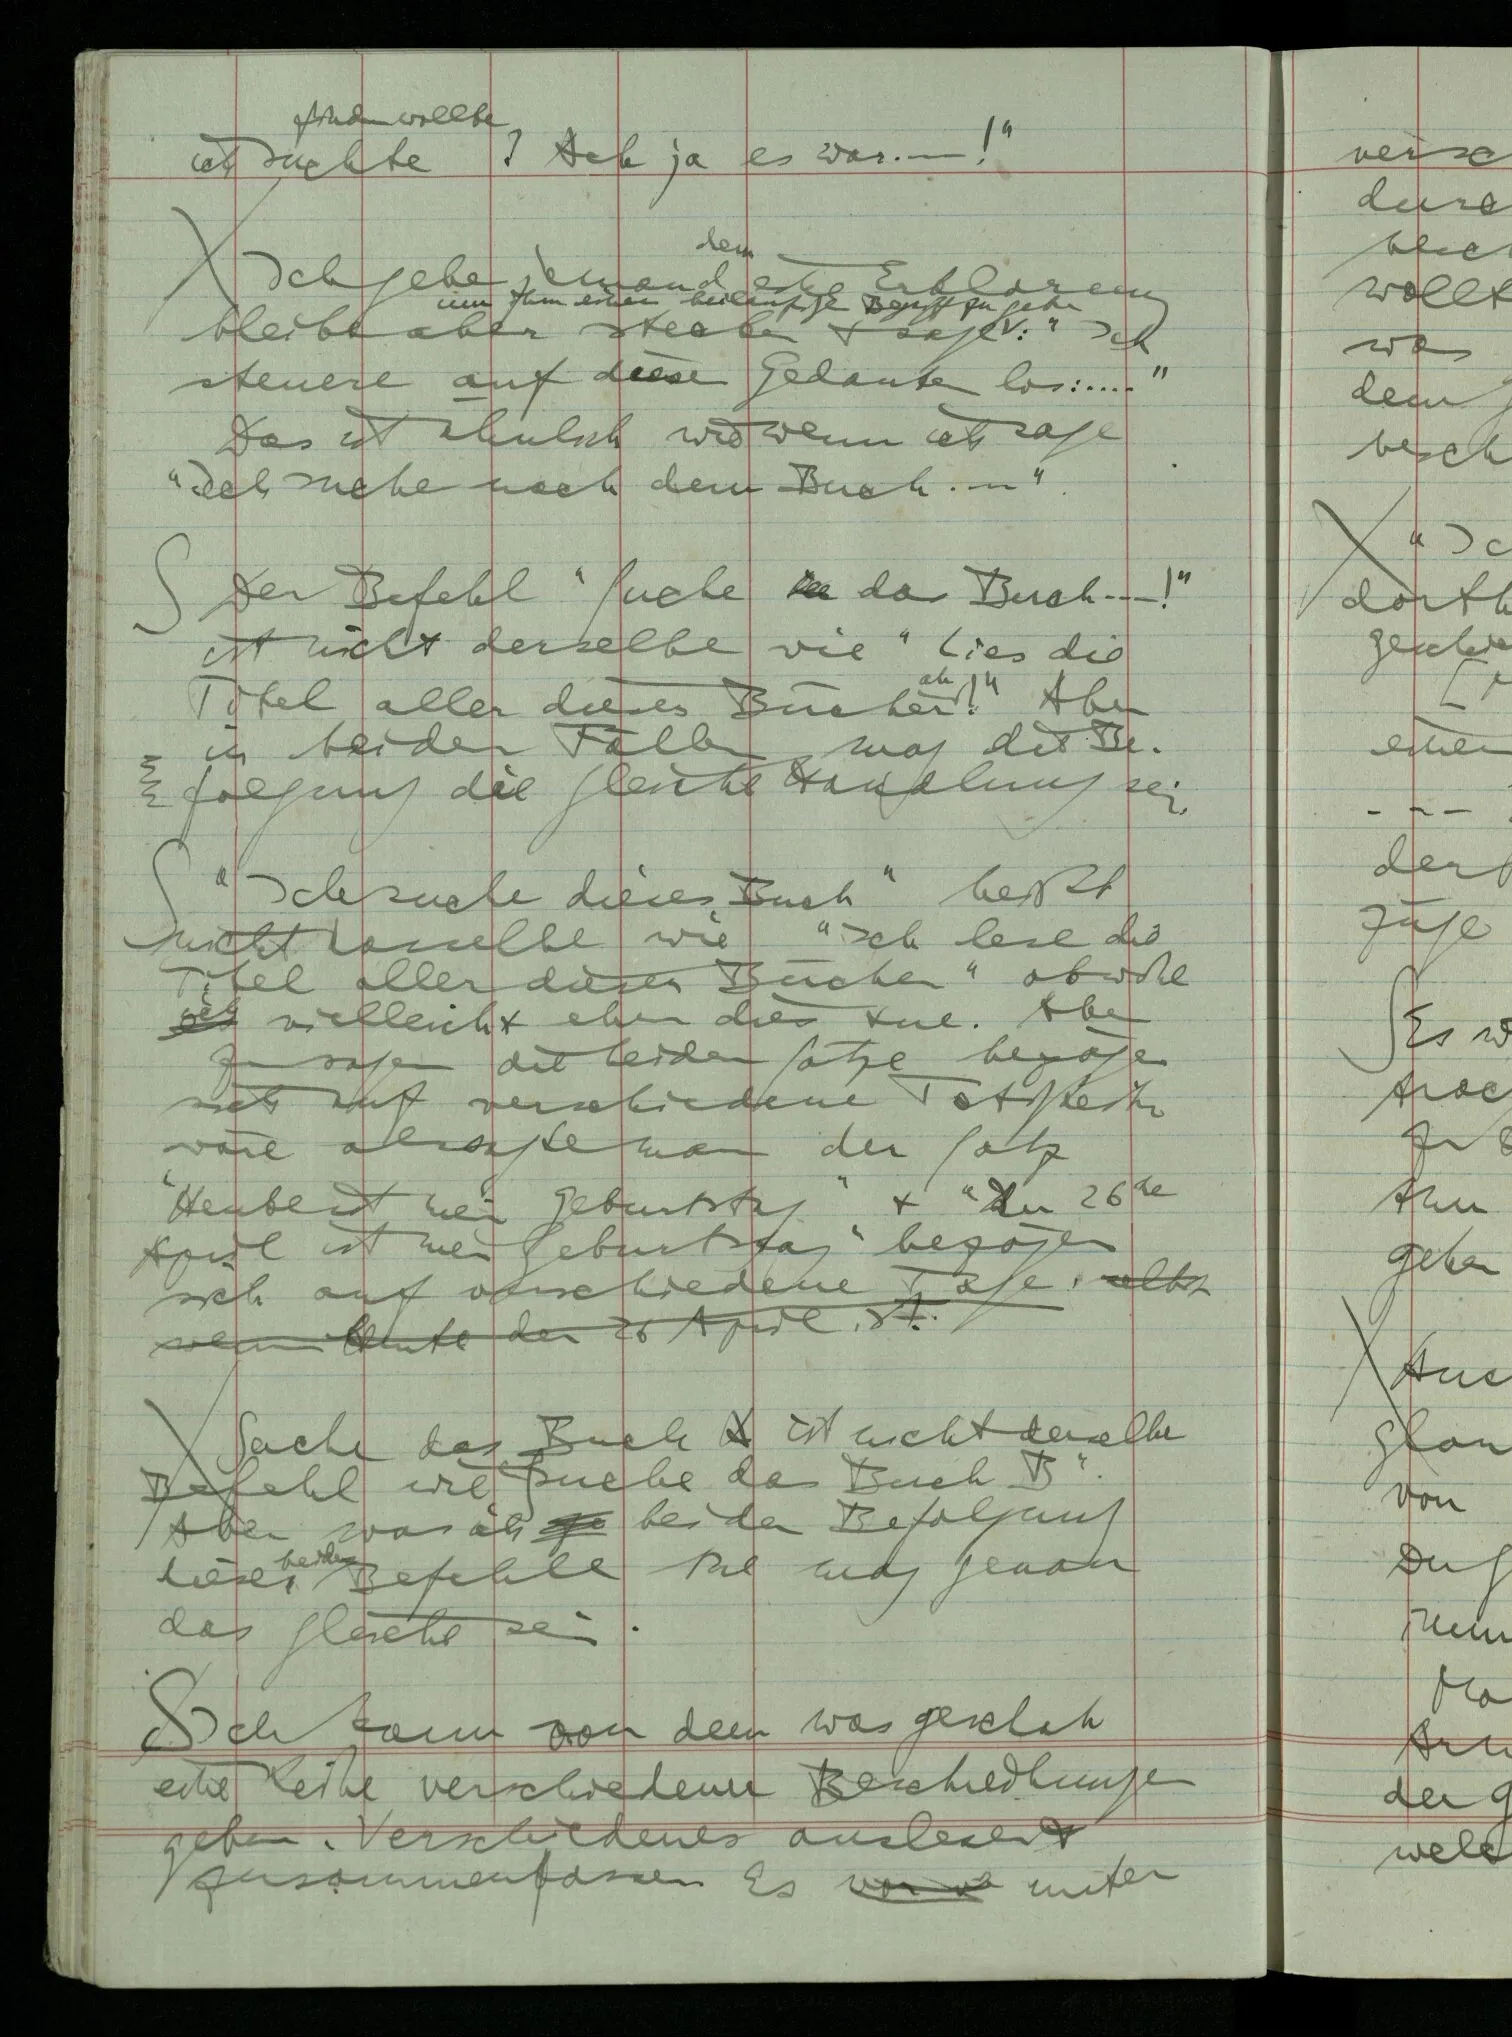 finden wollte
ich suchte ? Ach ja es war.—!"
Ich gebe jemandem eine Erklärung
um ihm einen beiläufige Begriff zu geben
bleibe aber stecken + sage: "Ich
steuere auf diesen Gedanken los:....."
Das ist ähnlich wie wenn ich sage
"Ich suche nach dem Buch .—".
Der Befehl "Suche das Buch---!"
ist nicht derselbe wie "Lies die
Titel aller dieser Bücher ab!" Aber
in beiden Fällen mag die Be-
folgung die gleiche Handlung sein.
"Ich suche dieses Buch" heißt
nicht dasselbe wie "Ich lese die
Titel aller dieser Bücher" obwohl
ich vielleicht eben dies tue. Aber
zu sagen die beiden Sätze bezögen
sich auf verschiedene Tätigkeiten
wäre als sagte man der Satz
"Heute ist mein Geburtstag" + "Der 26te
April ist mein Geburtstag" bezögen
sich auf verschiedene Tage, selbst
wenn heute der 26 April ist.
Suche das Buch A ist nicht derselbe
Befehl wie "Suche das Buch B".
Aber was ich bei der Befolgung
dieser beiden Befehle tue mag genau
das gleiche sein.
Ich kann von dem was geschah
eine Reihe verschiedener Beschreibungen
geben. Verschiedenes auslesend
zusammenfassen Es unter